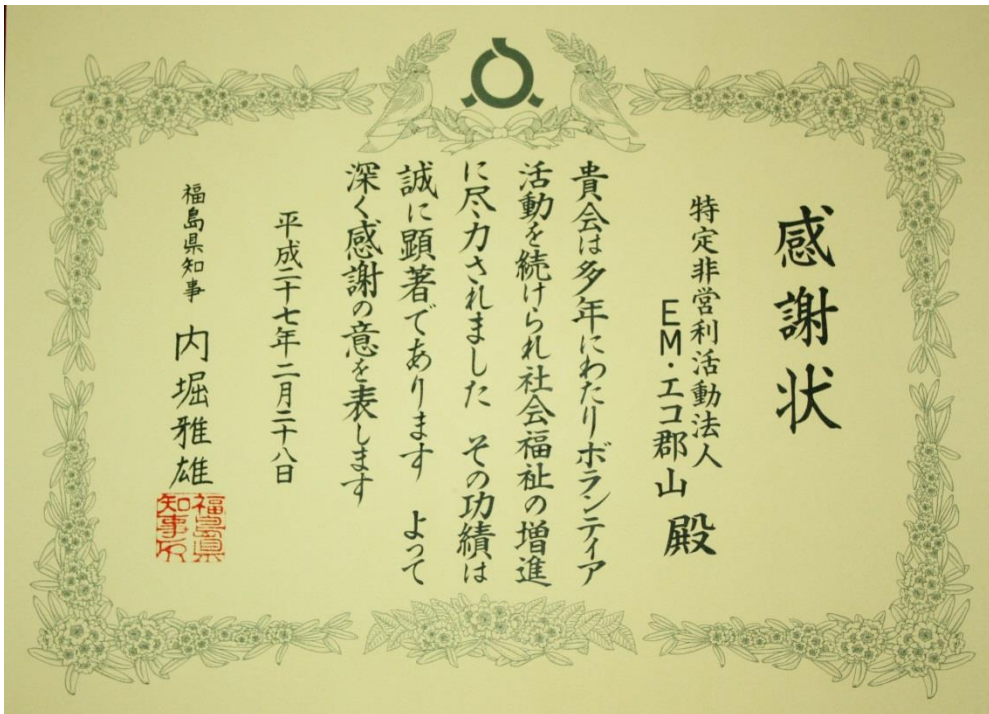 感謝状
特定非営利活動法人
EM・エコ郡山 殿
貴会は多年にわたりボランティア
活動を続けられ社会福祉の増進
に尽力されました その功績は
誠に顕著であります よって
深く感謝の意を表します
平成二十七年二月二十八日
福島県知事 内堀雅雄
福島県
知事印